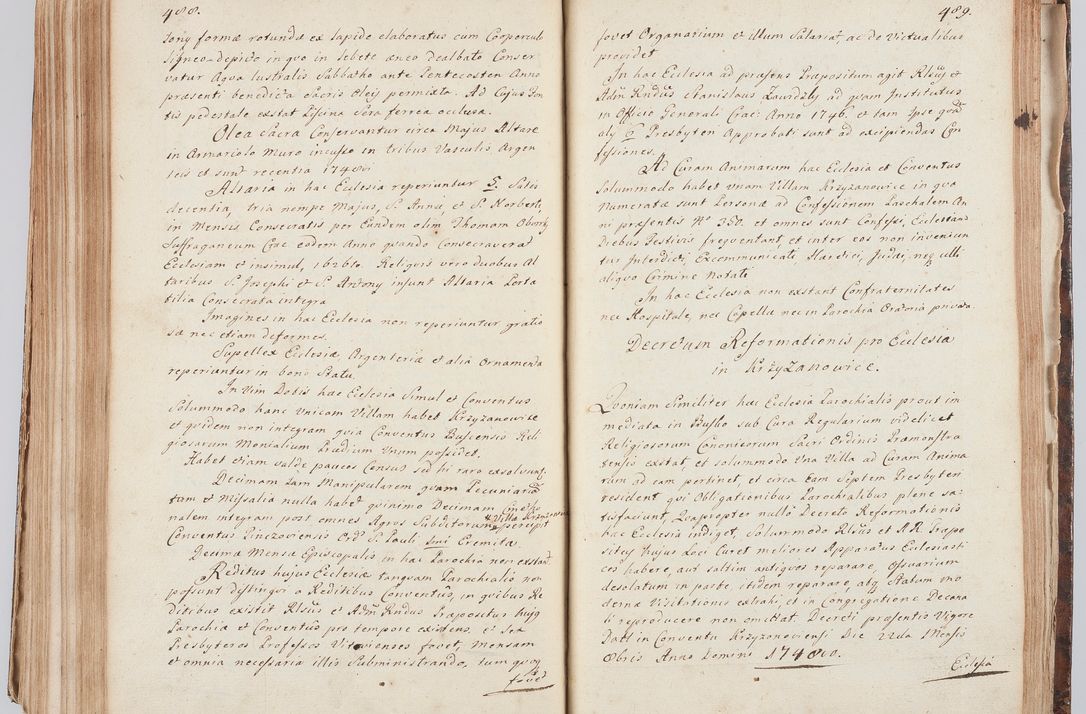 488.
tony formæ rotundæ ex lapide elaboratus cum Cooperculo
ligneo depicto in quo in lebete æneo dealbato Conser
vatur Aqua lustralis Sabbatho ante Pentecosten Anno
præsenti benedicta Sacris Oleis permixta. Ad Cujus Fon
tis pedestale extat Piscina Sera ferrea occlusa.
Olea Sacra Conservantur circa Majus Altare
in Armariolo Muro incusso in tribus Vasculis Argen
teis et sunt recentia 1748.
Altaria in hac Ecclesia reperiuntur 5. Satis
decentia, tria nempe Majus, S. Annæ, et S. Norberti,
in Mensis Consecratis per Eundem olim Thomam Oborsky
Suffraganeum Crac: eodem Anno quando Consecraverat
Ecclesiam et insimul, 1626to. Reliquis vero duobus Al
taribus S. Josephi et S. Antony insunt Altaria Porta
tilia Consecrata integra
Imagines in hac Ecclesia non reperiuntur gratio
sæ nec etiam deformes.
Supellex Ecclesiæ, Argenteria et alia Ornamenta
reperiuntur in bono Statu.
In Vim Dotis hæc Ecclesia Simul et Conventus
Solummodo hanc Unicam Villam habet Krzyzanowice
et quidem non integram quia Conventus Buscensis Reli
giosarum Monialium Prædium Unum possidet.
Habet etiam valde paucos Census sed hi raro exsolvuntr
Decimam tam Manipularem quam Pecuniariam
tum et Missalia nulla habet quinimo Decimam
nalem integram post omnes Agros Subditorum Villa Krzyzanow: percipit
Conventus Pinczoviensis Ordis S. Pauli 1mi Eremitæ.
Decima Mensæ Episcopalis in hac Parochia non extat.
Reditus hujus Ecclesiæ tanquam Parochialis non
possunt distingui a Reditibus Conventus, in quibus Re
ditibus existit Rlsus et Adm Rndus Præpositus hujq
Parochiæ et Conventus pro tempore existens, et Sex
Presbyteros Professos Vitovienses fovet, mensam
et omnia necessaria illis Subministrando, tum quoq
fovet
489.
fovet Organarium et illum Salariat, ac de Victualibus
providet
In hac Ecclesia ad præsens Præpositum agit Rlsus et
Adm Rndus Stanislaus Zawrdzky ad eam Institutus
in Officio Generali Crac: Anno 1746. et tam Ipse quam
aly 6 Presbyteri Approbati sunt ad excipiendas Con
fessiones.
Ad Curam Animarum hæc Ecclesia et Conventus
Solummodo habet Unam Villam Krzyzanowice in qua
Numeratæ sunt Personæ ad Confessionem Paschalem An
ni præsentis No 350. et omnes sunt Confessi, Ecclesiam
Diebus Festivis frequentant, et inter eos non inveniun
tur Interdicti, Excommunicati, Hæretici, Judæi, neq ulli
aliquo Crimine Notati
In hac Ecclesia non extant Confraternitates
nec Hospitale, nec Capella nec in Parochia Oratoria privata.
Decretum Reformationis pro Ecclesia
in Krzyzanowice.
Quoniam Similiter hæc Ecclesia Parochialis prout im
mediata in Busko sub Cura Regularium videlicet
Religiosorum Canonicorum Sacri Ordinis Præmonstra
tensis extat, et solummodo Una Villa ad Curam Anima
rum ad eam pertinet, et circa Eam Septem Presbyteri
resident qui Obligationibus Parochialibus plene sa:
tisfaciunt, Quapropter nullo Decreto Reformationis
hæc Ecclesia indiget, Solummodo Rlsus et A R Præpo
situs hujus Loci Curet meliores Apparatus Ecclesiasti
cos habere, aut saltim antiquos reparare, Ossuarium
desolatum in parte itidem reparare, atq Statum mo
dernæ Visitationis extrahi, et in Congregatione Decana
li reproducere non omittat. Decreti præsentis Vigore
Datt in Conventu Krzyzanoviensi Die 22da Mensis
Obris Anno Domini 1748vo.
Ecclesia